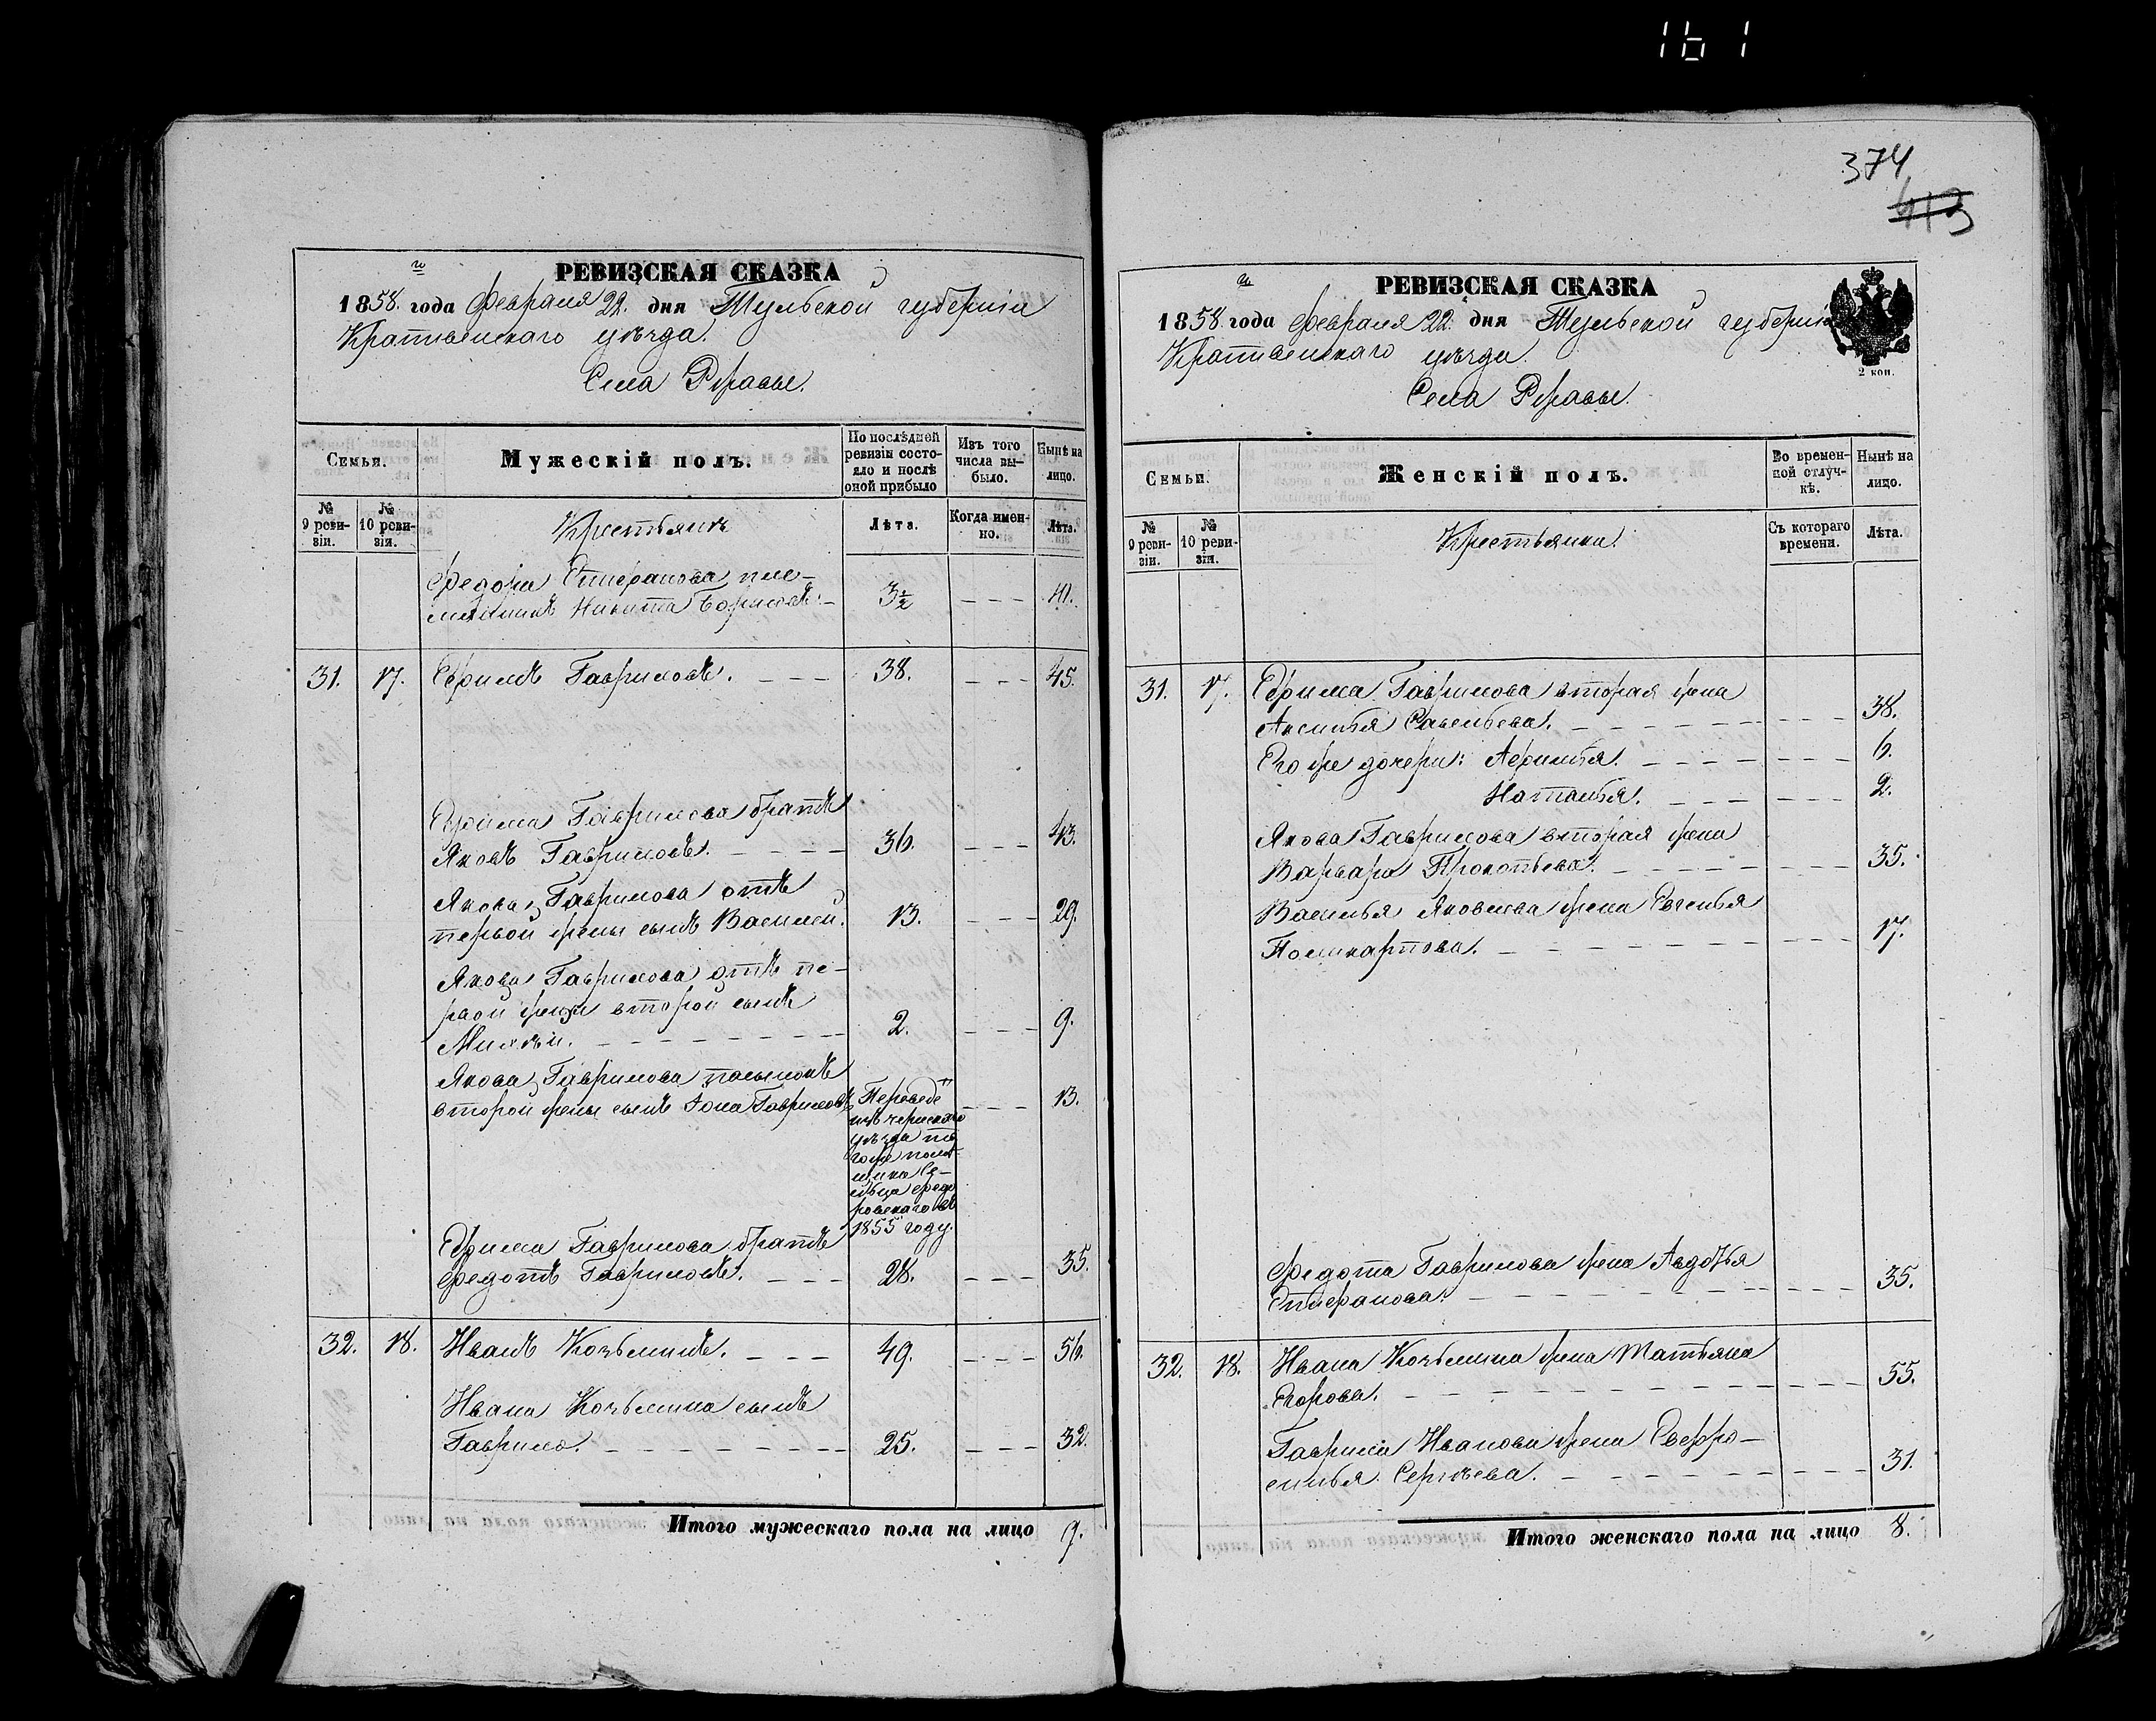 161
374
413
РЕВИЗСКАЯ СКАЗКА
1858. года Февраля 22. дня Тульской губерніи
Крапивенскаго уѣзда.
Села
Семьи.
Мужескій полъ.
По послѣдней ревизіи состояло и послѣ оной прибыло
Изъ того числа выбыло.
Нынѣ на лицо.
№ 9 ревизіи.
№ 10 ревизіи.
Крестьянъ
Лѣта.
Когда именно.
Лѣта.
Федора Стефанова пле-
мянникъ Никита Борисовъ. 3½ 10.
31. 17. Ефимъ Гавриловъ. 38. 45.
Ефима Гаврилова братъ
Яковъ Гавриловъ. 36. 43.
Якова Гаврилова отъ
первой жены сынъ Василій. 13. 20.
Якова Гаврилова отъ пе-
рвой жены второй сынъ
Михѣй. 2. 9.
Якова Гаврилова пасынокъ
второй жены сынъ Іона Гавриловъ
Переведе
изъ чернскаго
уѣзда то
гоже помѣ-
щика Се-
льца Федо
ровскаго въ
1855 году.
13.
Ефима Гаврилова братъ
Федотъ Гавриловъ. 28. 35.
32. 18. Иванъ Козьминъ. 49. 56.
Ивана Козьмина сынъ
Гаврило. 25. 32.
Итого мужескаго пола на лицо 9.
РЕВИЗСКАЯ СКАЗКА
1858. года Февраля 22. дня Тульской губерніи
Крапивенскаго уѣзда.
Села
2 коп.
Семьи.
Женскій полъ.
Во временной отлучкѣ.
Нынѣ на лицо.
№ 9 ревизіи.
№ 10 ревизіи.
Крестьянки.
Съ котораго времени.
Лѣта.
31. 17. Ефима Гаврилова вторая жена
Аксинья Савельева. 38.
Его же дочери: Афимья. 6.
Наталья. 2.
Якова Гаврилова вторая жена
Варвара Прокопьева. 35.
Василья Яковлева жена Евгенья
Поликарпова. 17.
Федота Гаврилова жена Авдотья
Стефанова. 35.
32. 18. Ивана Козьмина жена Матьяна
Егорова. 55.
Гаврилы Иванова жена Евфро-
синья Сергѣева. 31.
Итого женскаго пола на лицо 8.